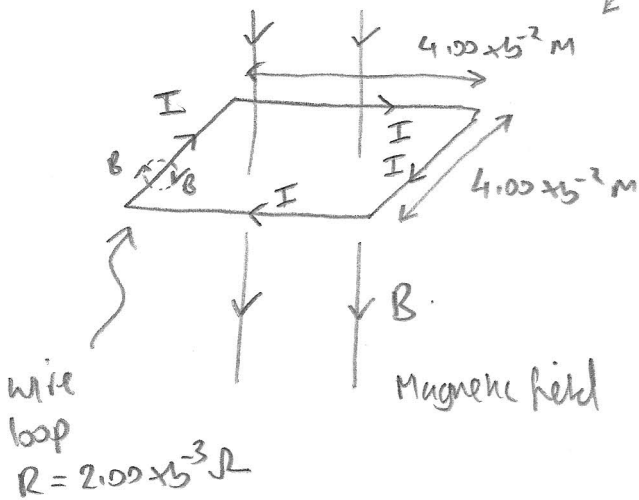 4.00 x 10⁻² M
I
I
I
4.00 x 10⁻² M
B
B
I
B.
wire
loop
R = 2.00 x 10⁻³ Ω
Magnetic field